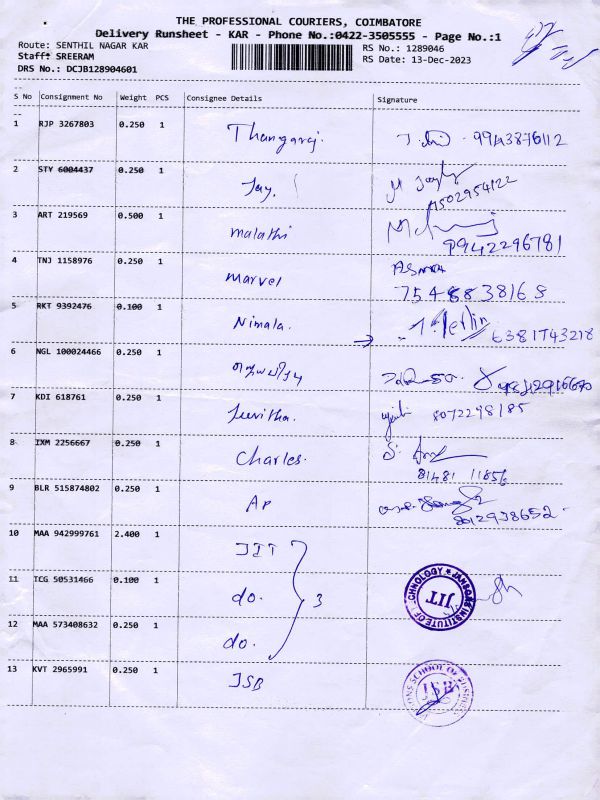 THE PROFESSIONAL COURIERS, COIMBATORE
Delivery Runsheet - KAR - Phone No.:0422-3505555 - Page No.:1
Route: SENTHIL NAGAR KAR
RS No.: 1289046
Staff: SREERAM
RS Date: 13-Dec-2023
DRS No.: DCJB128904601
S No Consignment No Weight PCS Consignee Details Signature
1 RJP 3267803 0.250 1 Thangaraj. 9943876112
2 STY 6004437 0.250 1 Jay. 7502954122
3 ART 219569 0.500 1 malathi 9942296781
4 TNJ 1158976 0.250 1 marvel ASMA
7548838168
5 RKT 9392476 0.100 1 Nimala. 6381743218
6 NGL 100024466 0.250 1
7 KDI 618761 0.250 1 8072298185
8 IXM 2256667 0.250 1 Charles.
81481 11856
9 BLR 515874802 0.250 1 AP
8012938652
10 MAA 942999761 2.400 1 JIT
11 TCG 50531466 0.100 1 do. 3 JANSONS INSTITUTE OF TECHNOLOGY JIT
12 MAA 573408632 0.250 1 do.
13 KVT 2965991 0.250 1 JSB JANSONS SCHOOL OF BUSINESS JSB